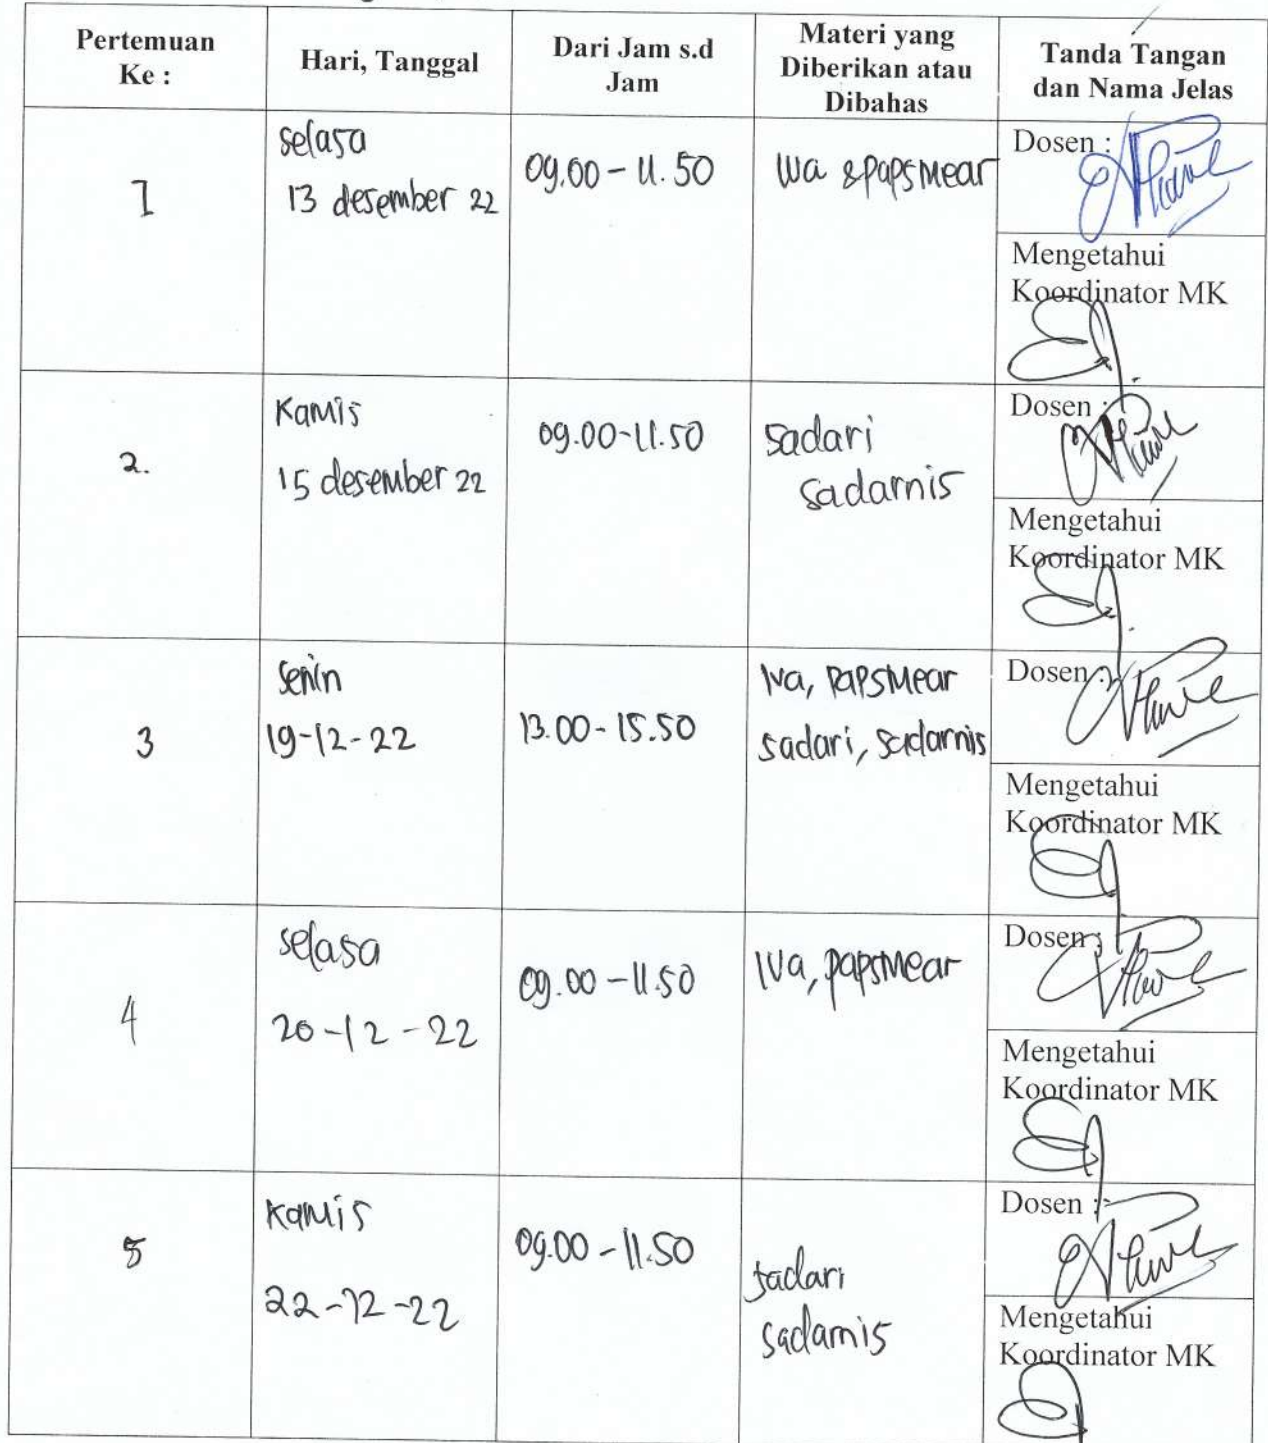 Pertemuan
Ke :
Hari, Tanggal
Dari Jam s.d
Jam
Materi yang
Diberikan atau
Dibahas
Tanda Tangan
dan Nama Jelas
1
selasa
13 desember 22
09.00 - 11.50
Iva & papsmear
Dosen :
Mengetahui
Koordinator MK
2.
Kamis
15 desember 22
09.00-11.50
sadari
sadarnis
Dosen :
Mengetahui
Koordinator MK
3
senin
19-12-22
13.00 - 15.50
Iva, papsmear
sadari, sadarnis
Dosen :
Mengetahui
Koordinator MK
4
selasa
20-12-22
09.00 - 11.50
Iva, papsmear
Dosen :
Mengetahui
Koordinator MK
5
Kamis
22-12-22
09.00 - 11.50
sadari
sadarnis
Dosen :
Mengetahui
Koordinator MK